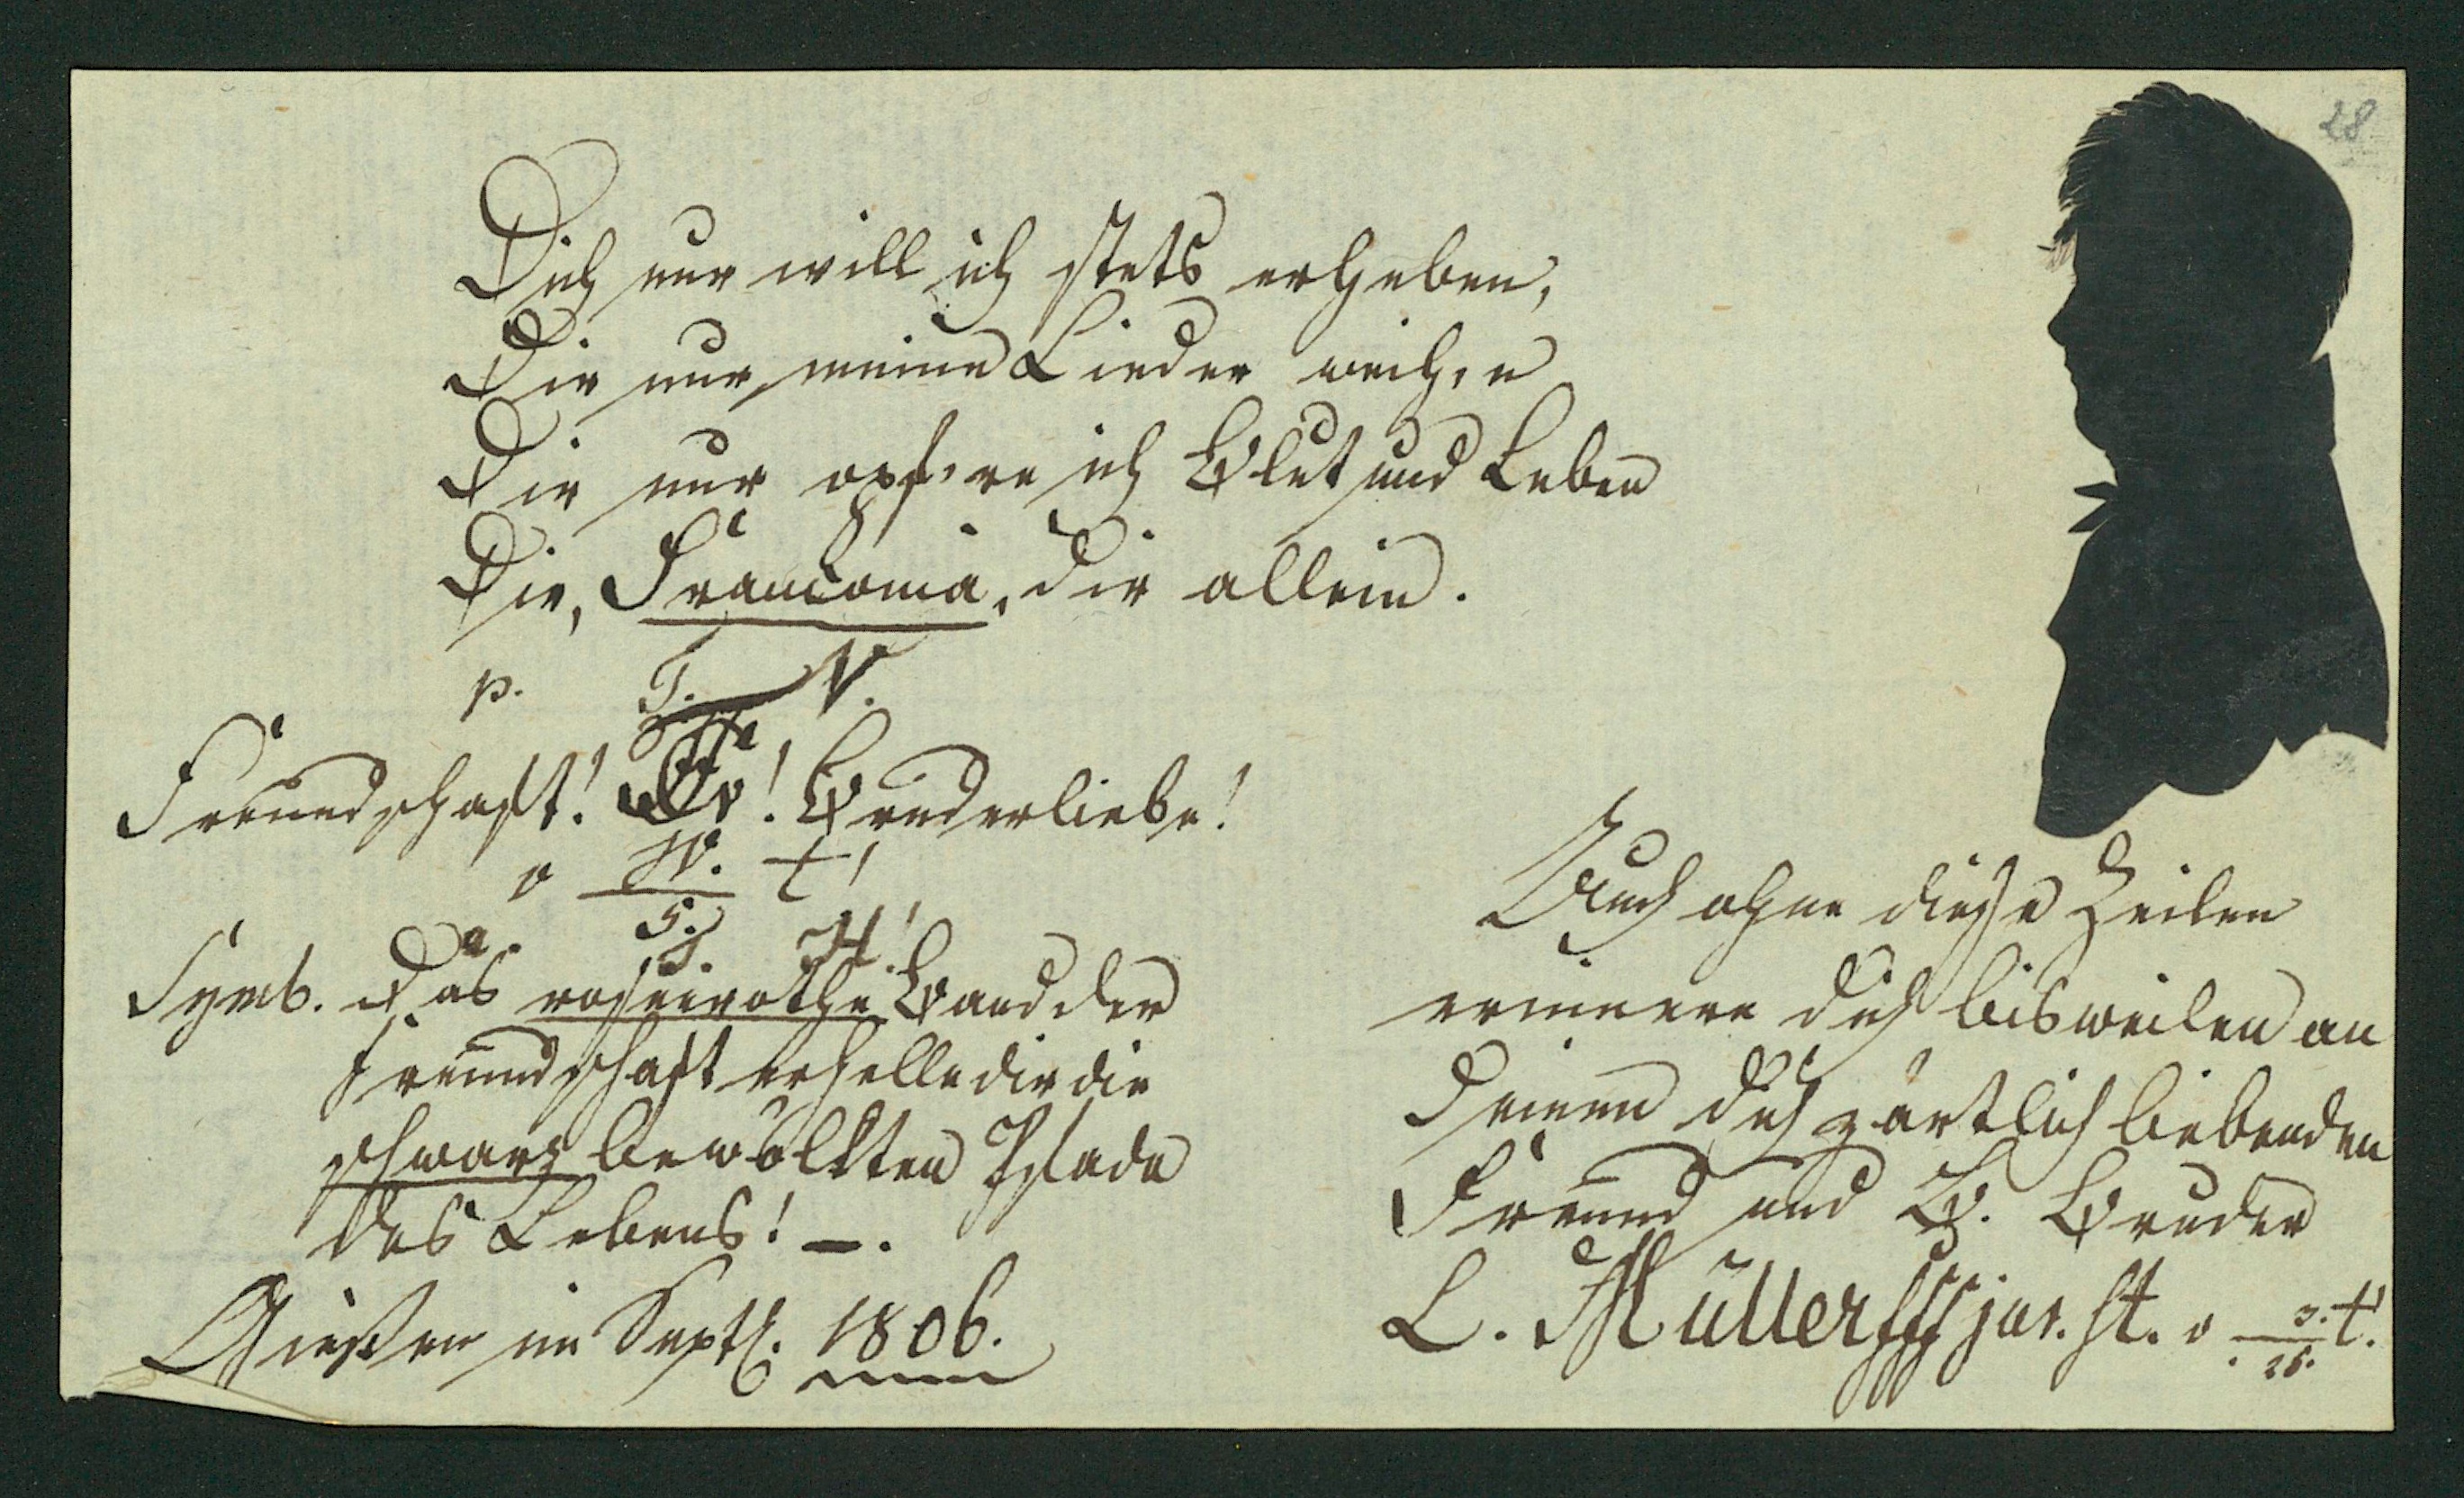 28
Dich nur will ich stets erheben,
Dir nur meine Lieder weih,n
Dir nur opf're ich Blut und Leben
Die, Franconia, dir allein.
p. T. V.
Freundschaft! Bruderliebe!
o IV. t!
5.
a. J. H!
Symb. Das rosenrothe Band der
Freundschaft erhelle dir die
schwarz bewölkten Pfade
des Lebens! –.
Giessen im Septbr. 1806.
Auch ohne diese Zeilen
erinnere dich bisweilen an
deinen dich zärtlich liebenden
Freund und B. Bruder
L. Müller jur. st. o 3. t.
26.